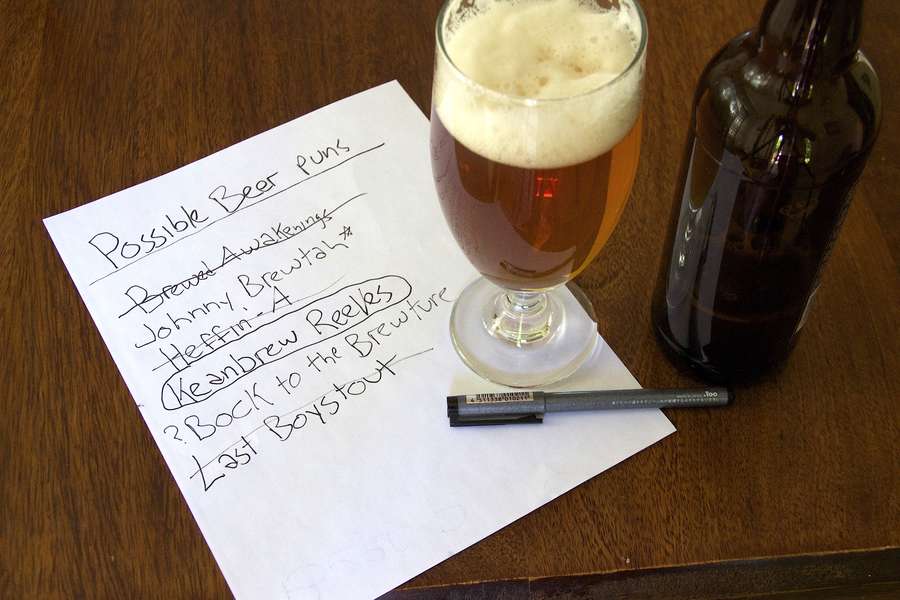 Possible Beer puns
Brewed Awakenings
Johnny Brewtah*
Heffin-A
Keanbrew Reeves
?Bock to the Brewture
Last Boystout
.Too
4 511338 010211